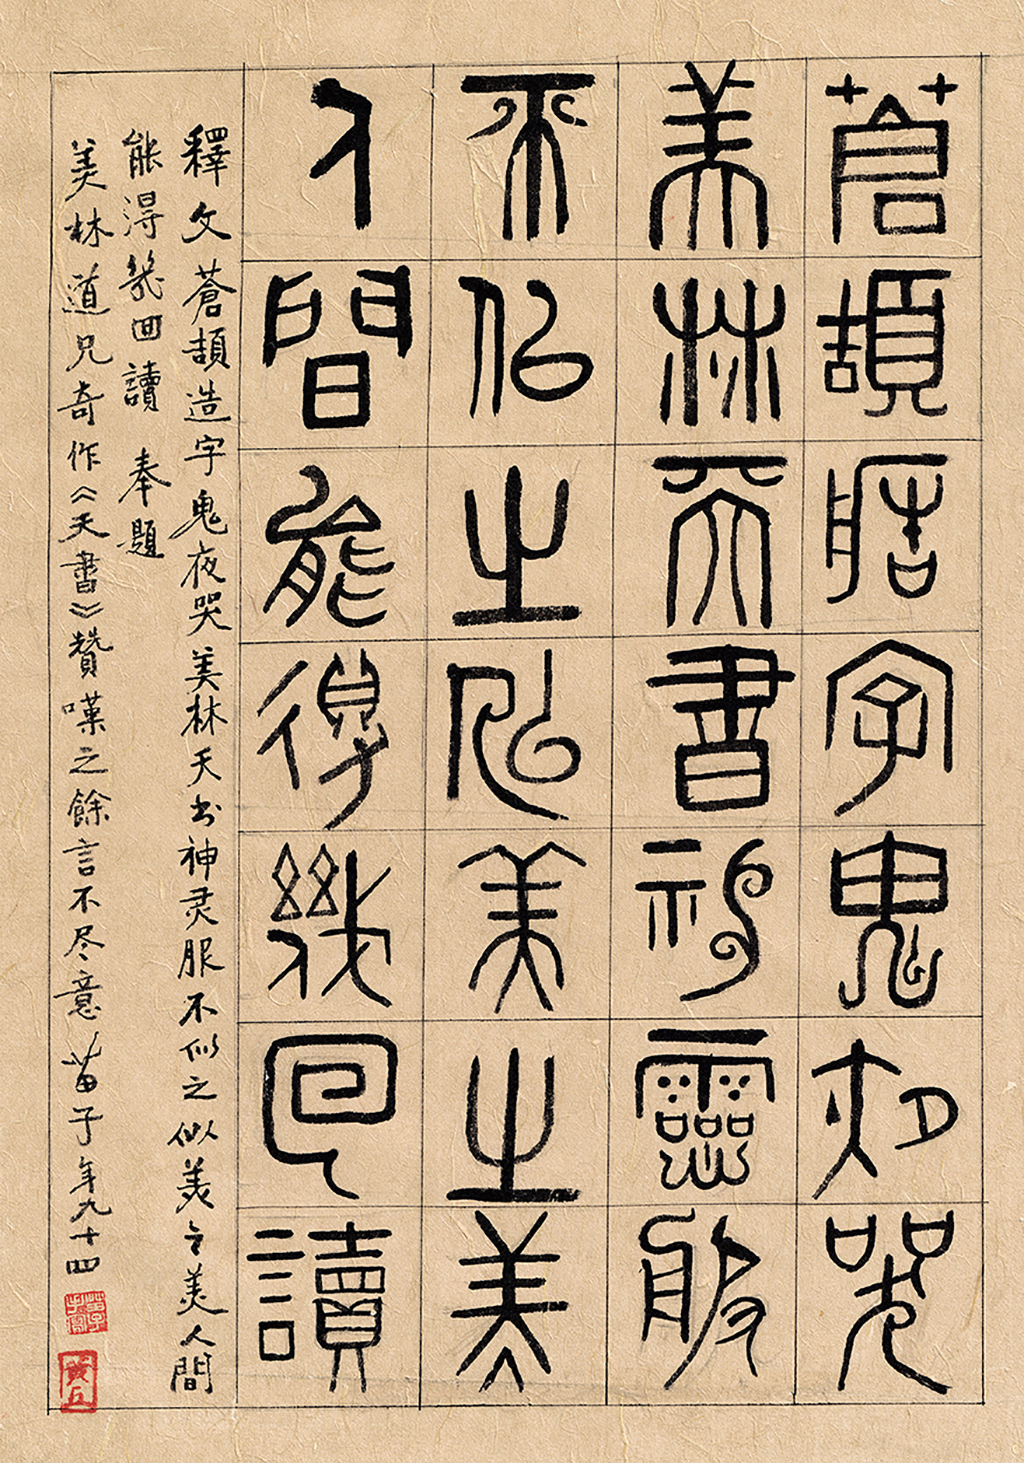 蒼頡造字鬼夜哭
美林天書神靈服
不似之似美之美
人間能得幾回讀
釋文 蒼頡造字鬼夜哭 美林天书神灵服不似之似美之美人間
能得幾回讀 奉題
美林道兄奇作《天書》贊嘆之餘言不尽意 苗子年九十四